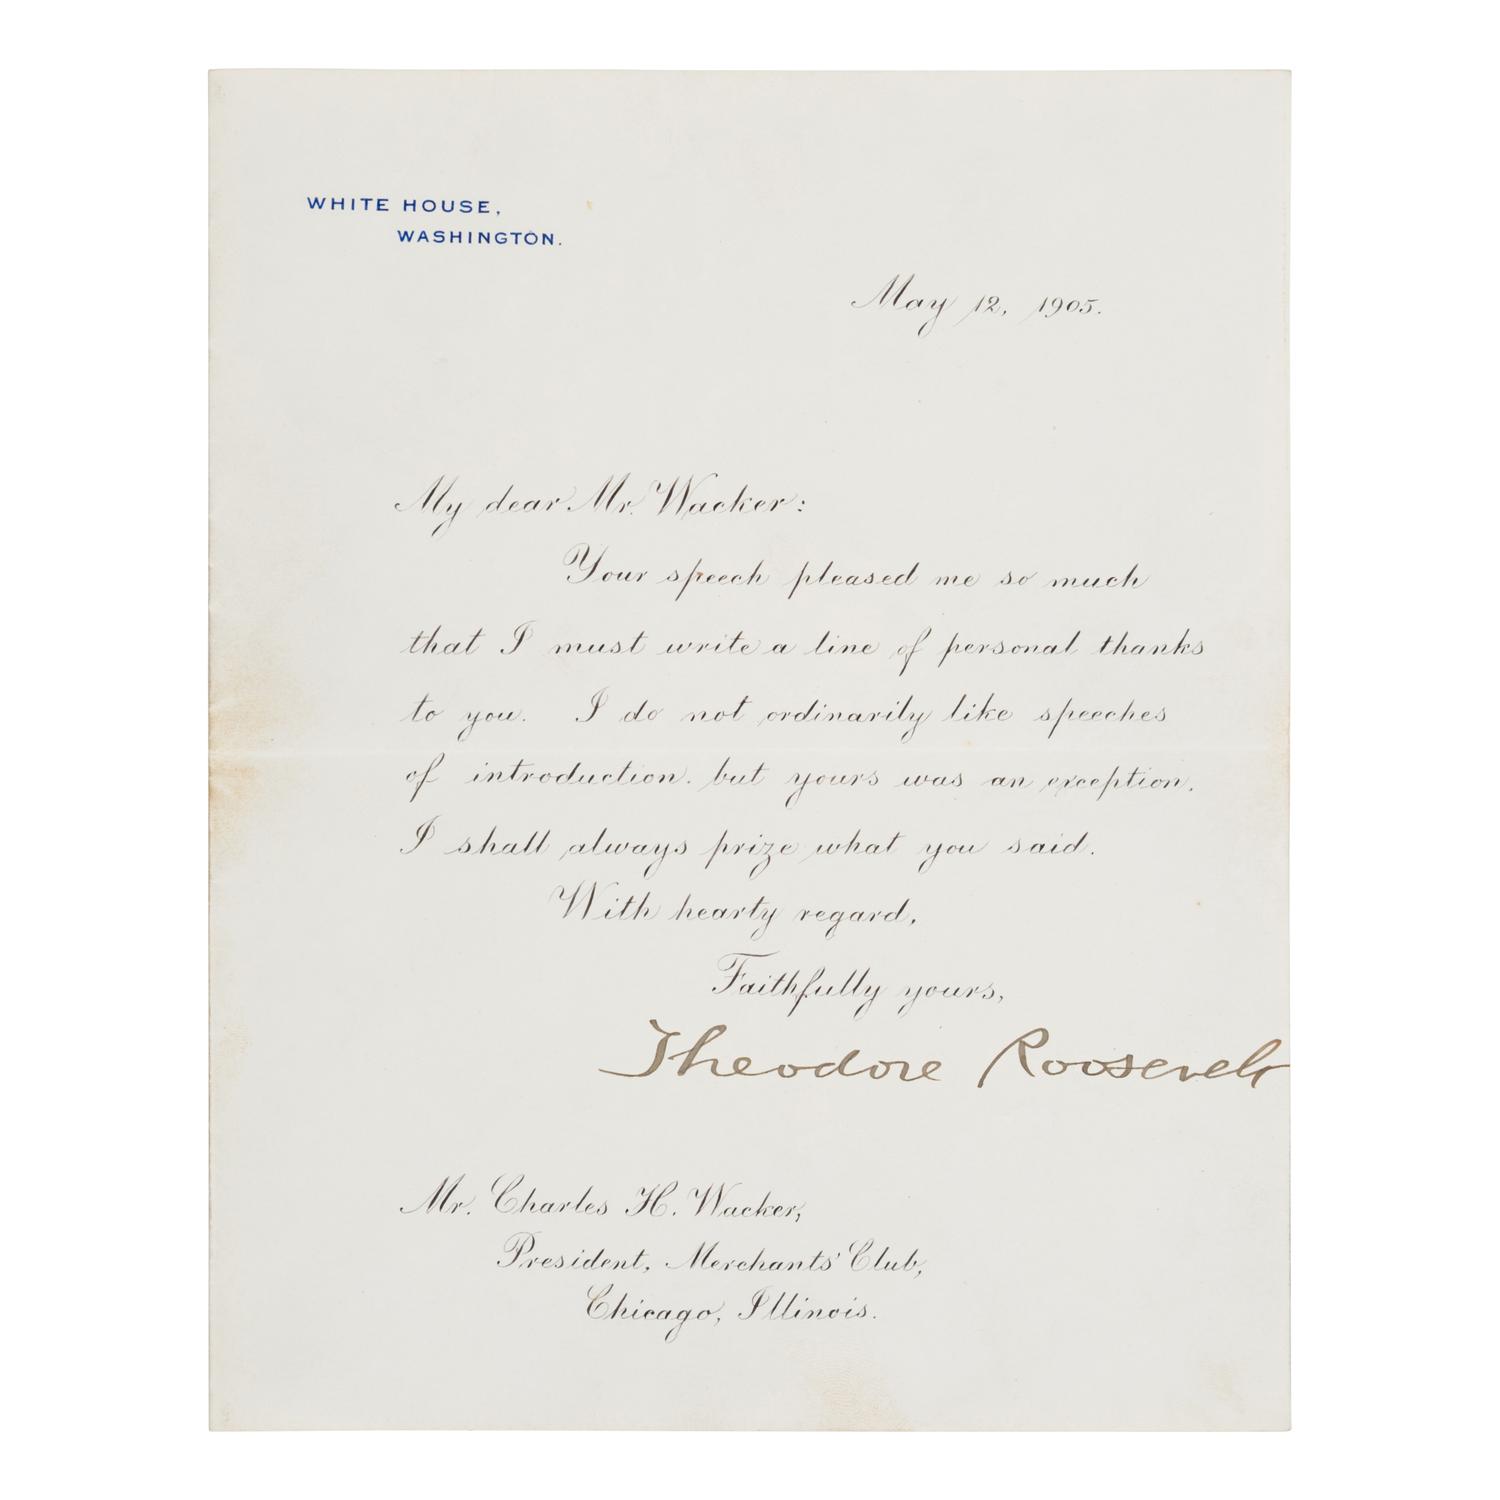 WHITE HOUSE,
WASHINGTON.
May 12, 1905.
My dear Mr. Wacker:
Your speech pleased me so much
that I must write a line of personal thanks
to you. I do not ordinarily like speeches
of introduction. but yours was an exception.
I shall always prize what you said.
With hearty regard,
Faithfully yours,
Theodore Roosevelt
Mr. Charles H. Wacker,
President, Merchants' Club,
Chicago, Illinois.